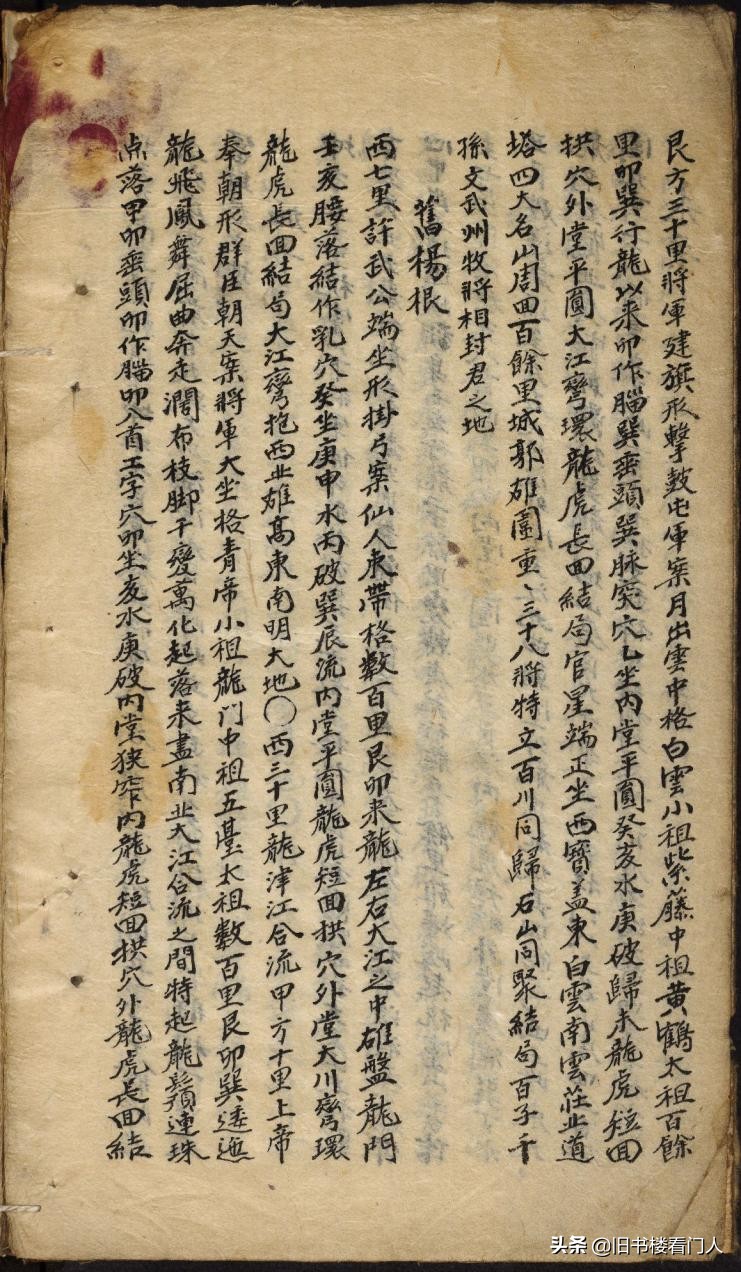 艮方三十里將軍建旗形擊鼓屯軍案月出雲中格白雲小祖紫藤中祖黃鶴太祖百餘
里卯巽行龍以來卯作腦巽垂頭巽脉突穴乙坐內堂平圓癸亥水庚破歸未龍虎短回
拱穴外堂平圓大江彎環龍虎長回結局官星端正坐西寶盖東白雲南雲莊北道
塔四大名山周回百餘里城郭雄圍重、三十八將特立百川同歸石山同聚結局百子千
孫文武州牧將相封君之地
舊楊根
西七里許武公端坐形掛弓案仙人束帶格数百里艮卯来龍左右大江之中雄盤龍門
壬亥腰落結作乳穴癸坐庚申水丙破巽辰流內堂平圓龍虎短回拱穴外堂大川彎環
龍虎長回結局大江彎抱西北雄高東南明大地〇西三十里龍津江合流甲方十里上帝
奉朝形群臣朝天案將軍大坐格青帝小祖龍门中祖五臺太祖数百里艮卯巽逶迤
龍飛鳳舞屈曲奔走濶布枝脚千變萬化起落来盡南北大江合流之間特起龍鬚連珠
点落甲卯垂頭卯作腦卯入首工字穴卯坐亥水庚破內堂狹窄內龍虎短回拱穴外龍虎長回結
头条 @旧书楼看门人